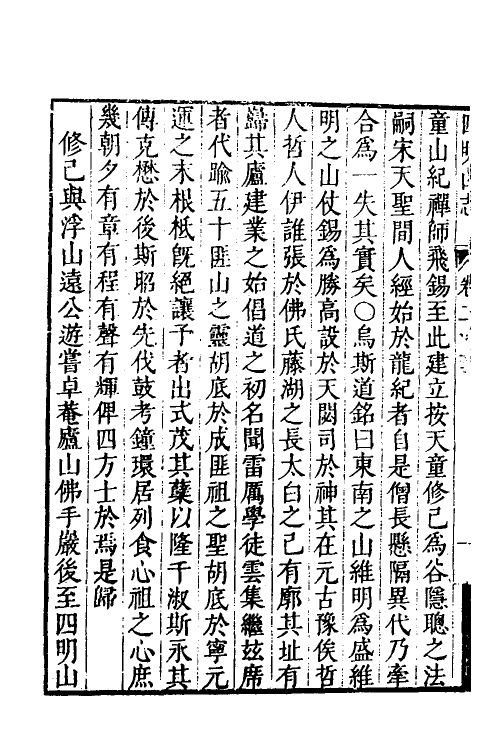 四明山志 卷二
童山紀禪師飛錫至此建立按天童修己爲谷隱聰之法
嗣宋天聖間人經始於龍紀者自是僧長懸隔異代乃牽
合爲一失其實矣○烏斯道銘曰東南之山維明爲盛維
明之山仗錫爲勝高設於天閟司於神其在元古豫俟哲
人哲人伊誰張於佛氏藤湖之長太白之己有廓其址有
巋其廬建業之始倡道之初名聞雷厲學徒雲集繼玆席
者代踰五十匪山之靈胡底於成匪祖之聖胡底於寧元
運之末根柢旣絕讓子者出式茂其蘖以隆千淑斯永其
傳克懋於後斯昭於先伐鼓考鐘環居列食心祖之心庶
幾朝夕有章有程有聲有輝俾四方士於焉是歸
修己與浮山遠公遊嘗卓菴廬山佛手巖後至四明山